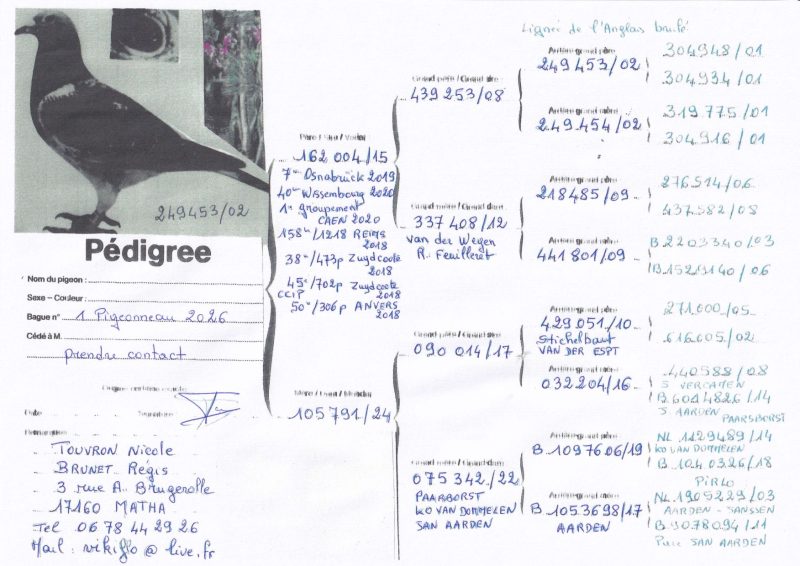 249453/02
Pédigree
Nom du pigeon :
Sexe – Couleur :
Bague n° 1 Pigeonneau 2026
Cédé à M.
prendre contact
Date
Signature
TOUVRON Nicole
BRUNET Régis
3 rue A. Brugerolle
17160 MATHA
Tel 06 78 44 29 26
Mail : vikiflo @ live.fr
Père / Sire / Vader
162 004/15
7e Osnabrück 2019
40e Wissembourg 2020
1er groupement
CAEN 2020
158e/1218 REIMS
2018
38e/473p Zuydcoote
2018
45e/702p Zuydcoote
CCIP 2018
50e/306p ANVERS
2018
105791/24
439253/08
337408/12
van der Wegen
R. Feuilleret
090 014/17
075 342/22
PAARBORST
KO VAN DOMMELEN
SAN AARDEN
Lignée de l'Anglais brulé
Arrière-grand-père
249453/02
Arrière-grand-mère
249454/02
Arrière-grand-père
218485/09
Arrière-grand-mère
441801/09
Arrière-grand-père
429051/10
Stichelbaut
VAN DER ESPT
Arrière-grand-mère
032204/16
Arrière-grand-père
B 1097606/19
Arrière-grand-mère
B 1053698/17
AARDEN
304948/01
304934/01
319775/01
304916/01
276514/06
437582/08
B 2203340/03
B 1529140/06
271000/05
616005/02
440588/08
S VERCAMEN
B 6014826/14
S AARDEN
PAARSBORST
NL 1129489/14
KO VAN DOMMELEN
B 1040326/18
PIRLO
NL 1905229/03
AARDEN - JANSSEN
B 9078094/11
Pure SAN AARDEN